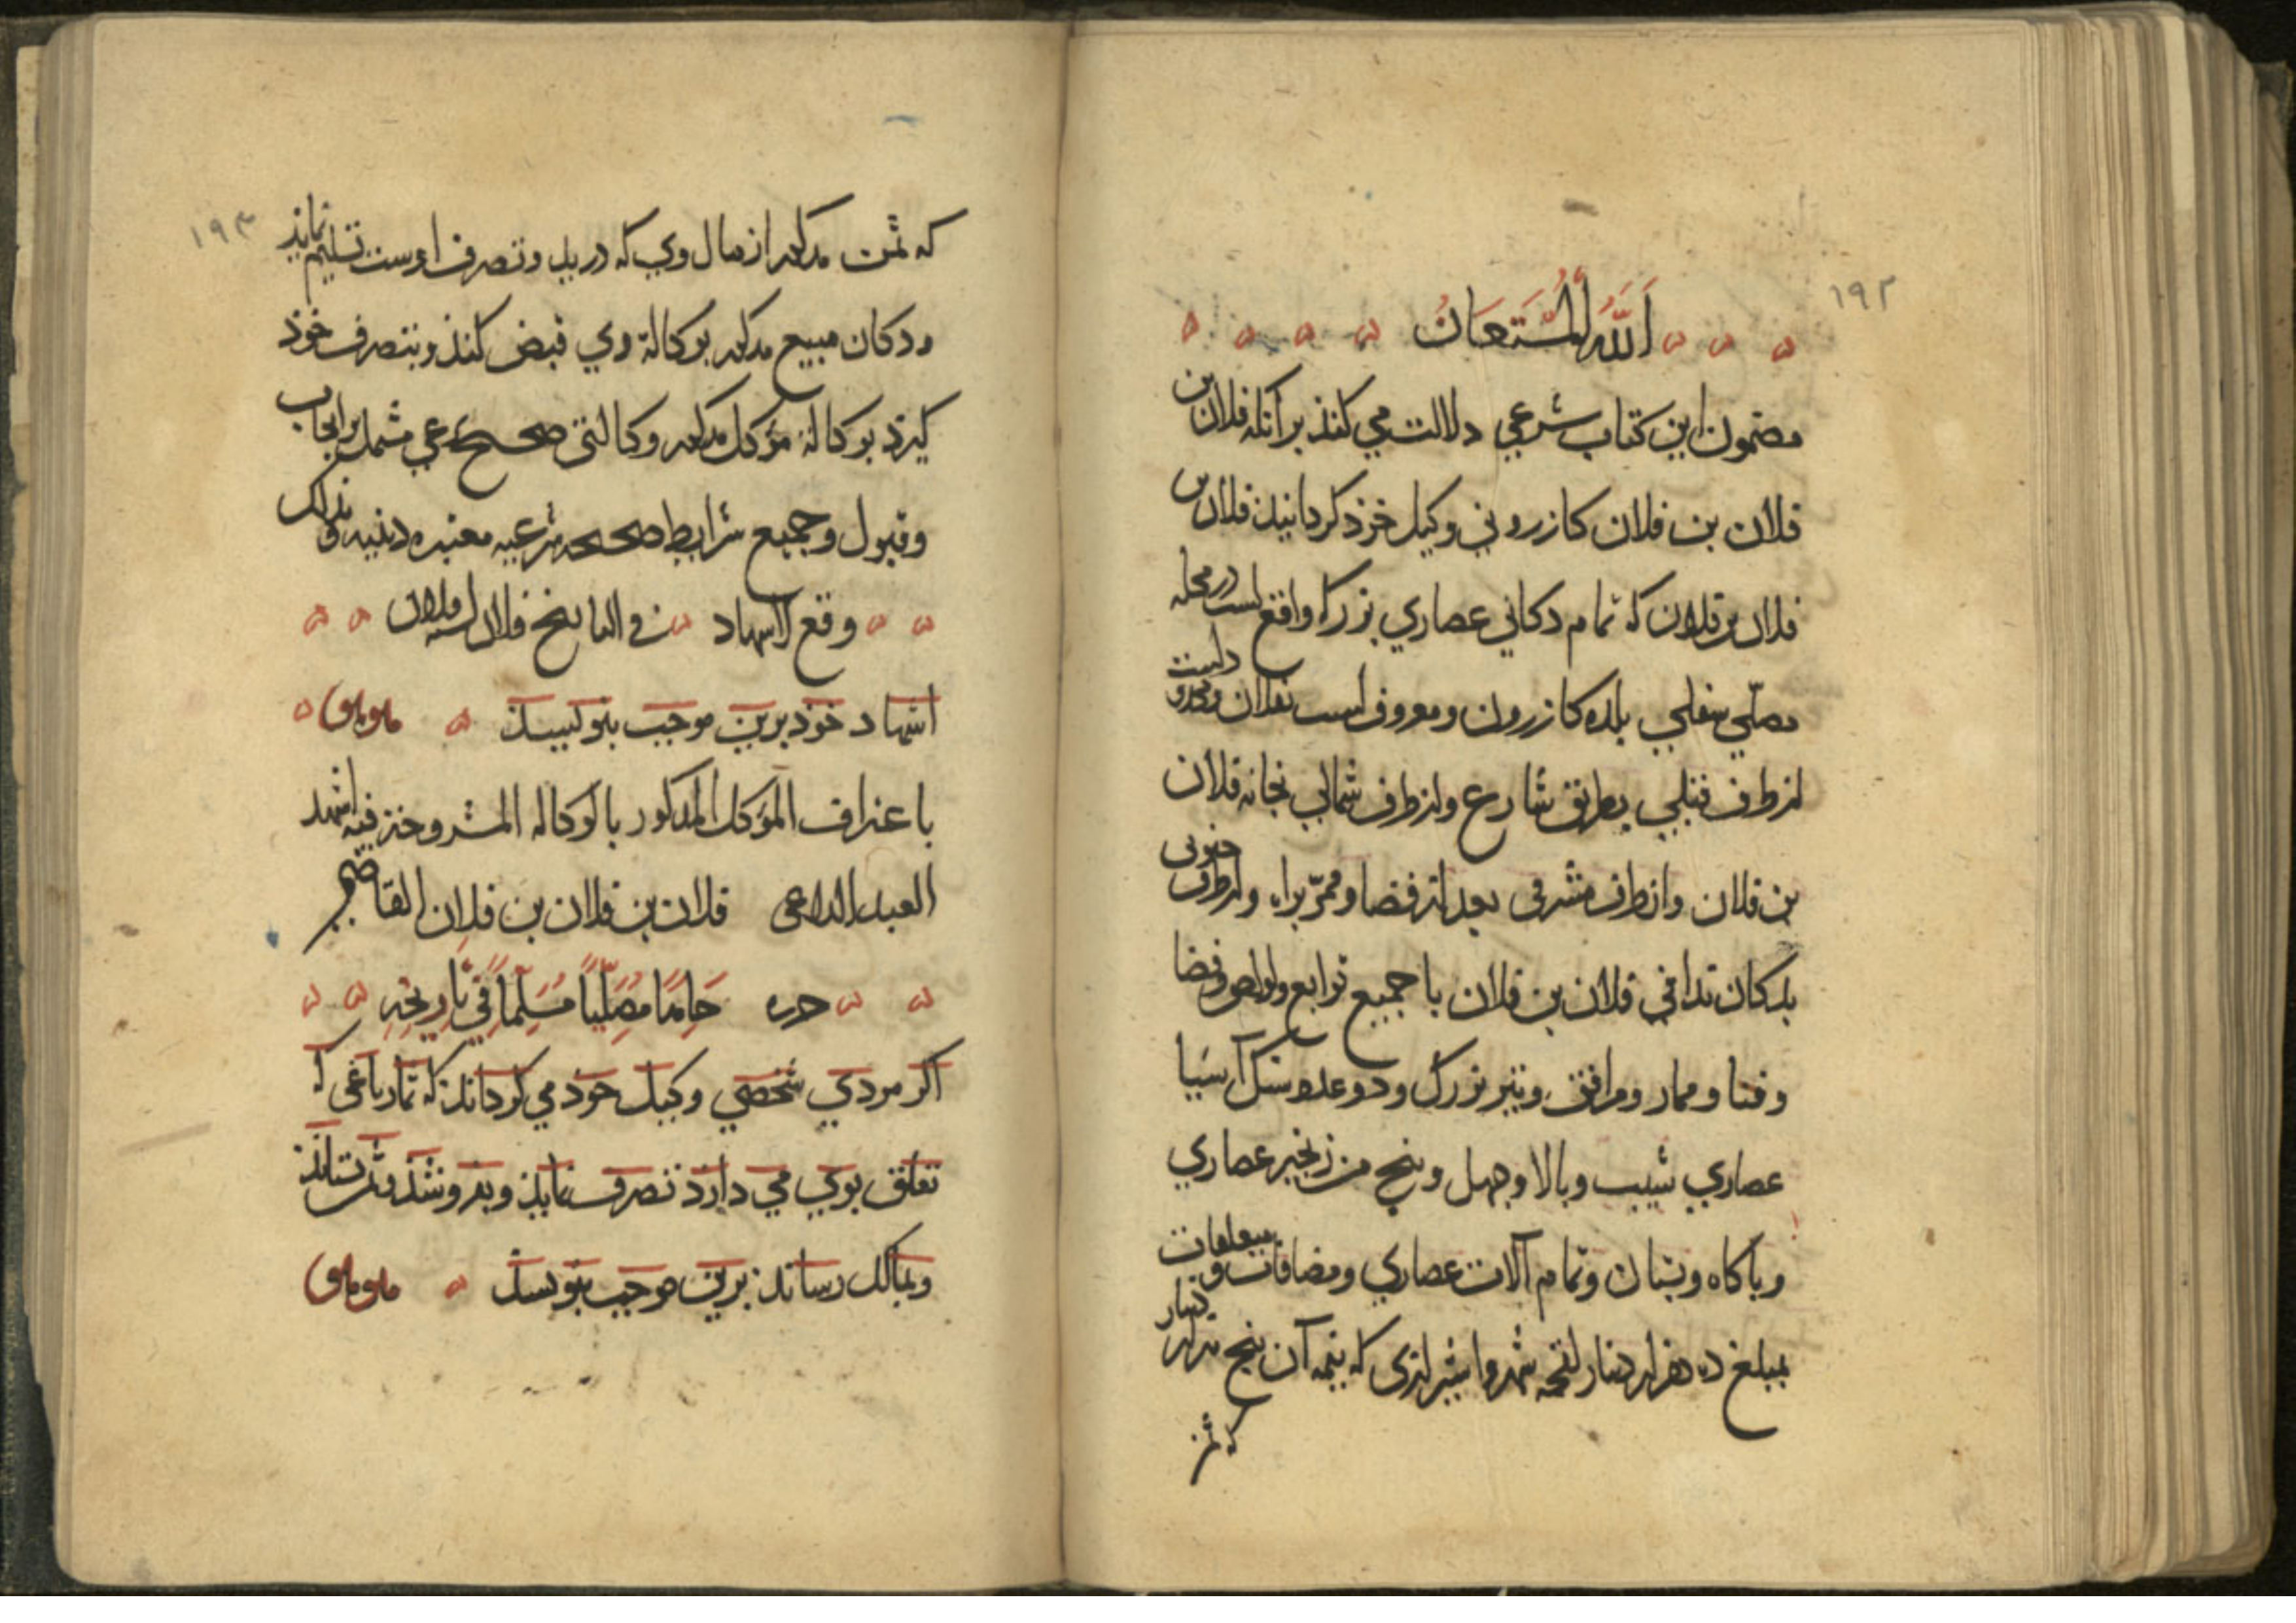 ١٩٢
اَللّٰهُ الْمُسْتَعَانُ
مضمون این کتاب شرعي دلالت مي کنذ برآنکه فلان بن
فلان بن فلان کازروني وکیل خوذ کردانیذ فلان بن
فلان بن فلان که تمام دکاني عصاري بزرک واقع است در محله
مصلّي سفلي بلده کازرون ومعروف است بفلان ومحدود است
از طرف قبلي بطریق شارع واز طرف شمالي بخانه فلان
بن فلان واز طرف شرقي بعد از فضا وممرّ براه واز طرف جنوبی
بدکان ندافي فلان بن فلان با جمیع توابع ولواحق وفضا
وفنا وممار ومرافق وتیر بزرک ودو عدد سنک آسیا
عصاري شیب وبالا وچهل وپنج من زنجیر عصاري
وباکاه وبتیان وتمام آلات عصاري ومضافات ومتعلقات
بمبلغ ده هزار دینار شیرازی که نیمه آن پنج هزار دینار
که ثمن
١٩٣
که ثمن مذکور از مال وي که در ید وتصرف اوست تسلیم نمایذ
ودکان مبیع مذکور بوکالة وي قبض کنذ وبتصرف خوذ
کیرذ بوکالة مؤکل مذکور وکالتی صحیح شرعي مشتمل بر ایجاب
وقبول وجمیع شرایط صحیحه شرعیه معتبره دینیه وبذلک
وقع الاشهاد في التاریخ فلان لسنه فلان
اشهاد خوذ برین موجب بنویسد
باعتراف المؤکل المذکور بالوکاله المشروحة فیه اشهد
العبد الداعی فلان بن فلان بن فلان القاضي
حرره حَامِدًا مُصَلِّیًا مُسَلِّمًا فِي تَارِیْخِهِ
اکر مردي شخصي وکیل خوذ مي کرداند که تمام باغی که
تعلق بوي مي دارذ تصرف نمایذ وبفروشذ وثمن بستانذ
وبمالک رساند برین موجب بنویسد